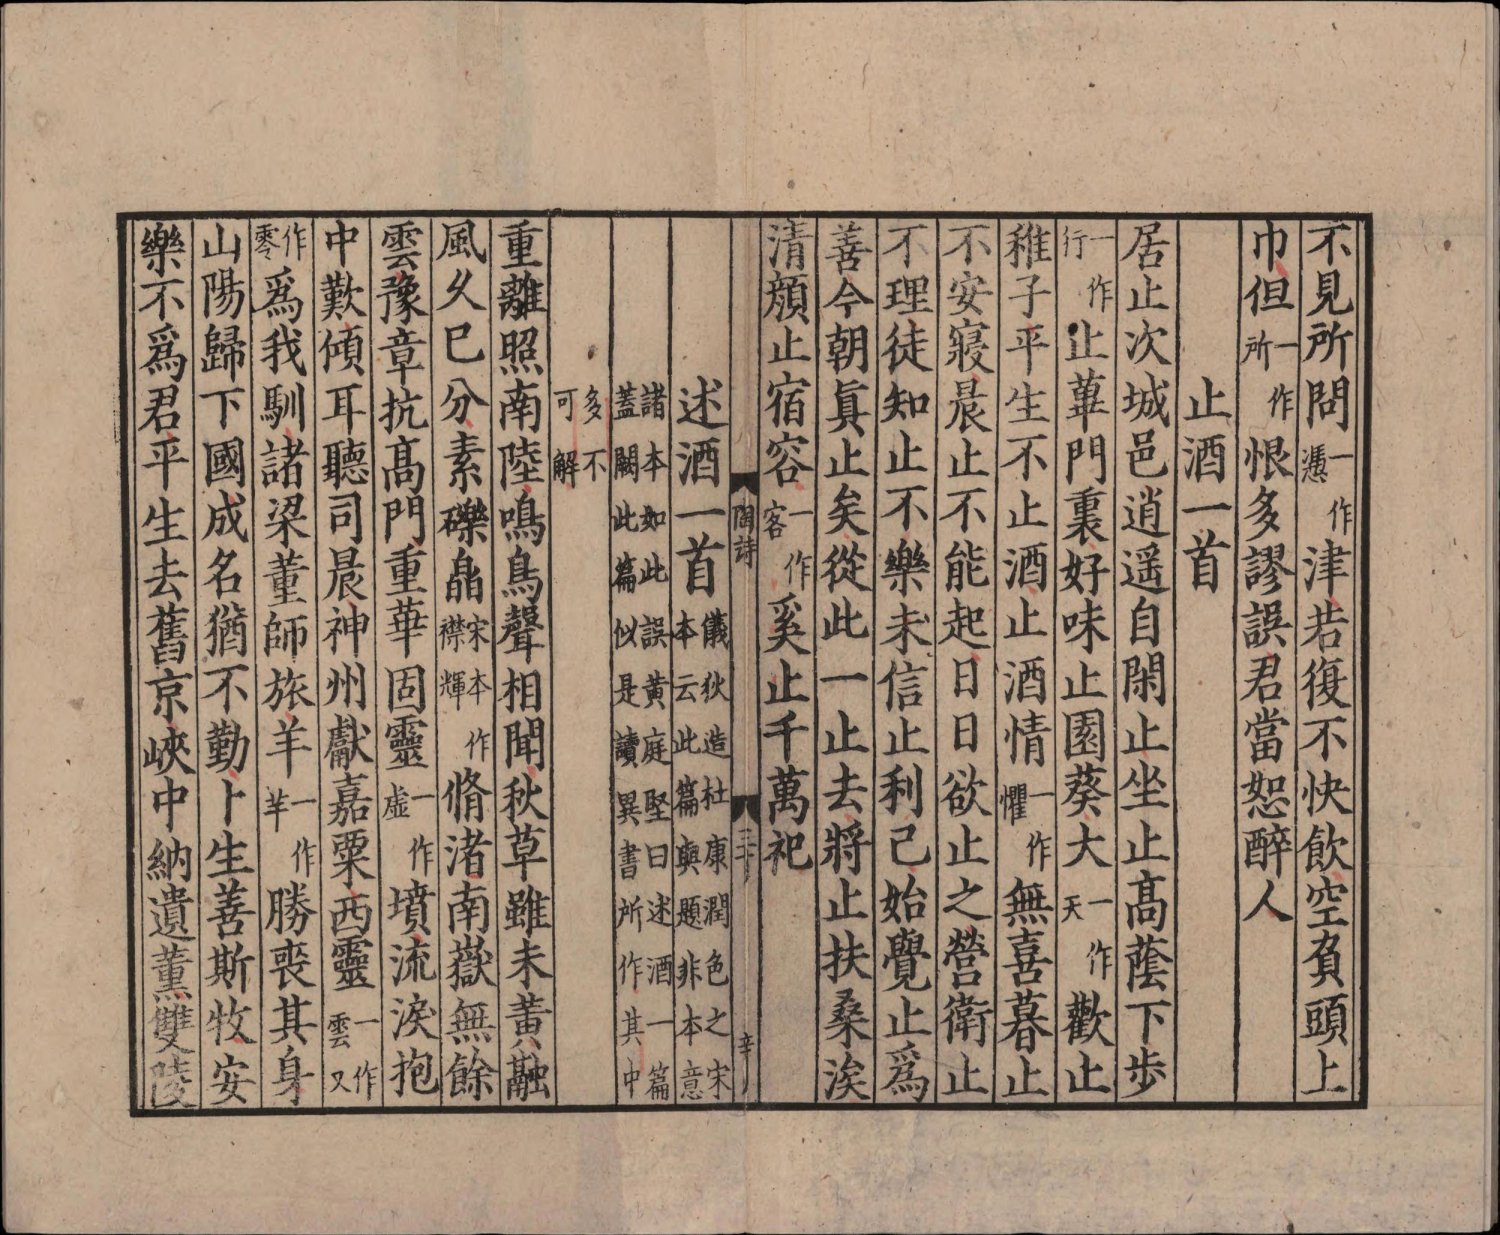 不見所問一作憑津若復不快飲空負頭上
巾但一作所恨多謬誤君當恕醉人
止酒一首
居止次城邑逍遥自閑止坐止髙蔭下步
一作行止蓽門裏好味止園葵大一作天歡止
稚子平生不止酒止酒情一作懼無喜暮止
不安寢晨止不能起日日欲止之營衛止
不理徒知止不樂未信止利己始覺止爲
善今朝真止矣從此一止去將止扶桑涘
清顔止宿容一作客奚止千萬祀
陶詩 三十 辛
述酒一首儀狄造杜康潤色之宋本云此篇與題非本意
諸本如此誤黄庭堅曰述酒一篇蓋闕此篇似是讀異書所作其中
多不可解
重離照南陸鳴鳥聲相聞秋草雖未黄融
風乆已分素礫皛宋本作襟輝脩渚南嶽無餘
雲豫章抗髙門重華固靈一作虛墳流淚抱
中歎傾耳聽司晨神州獻嘉粟西靈一作雲又
作零爲我馴諸梁董師旅羊一作芊勝喪其身
山陽歸下國成名猶不勤卜生善斯牧安
樂不爲君平生去舊京峽中納遺薫雙陵